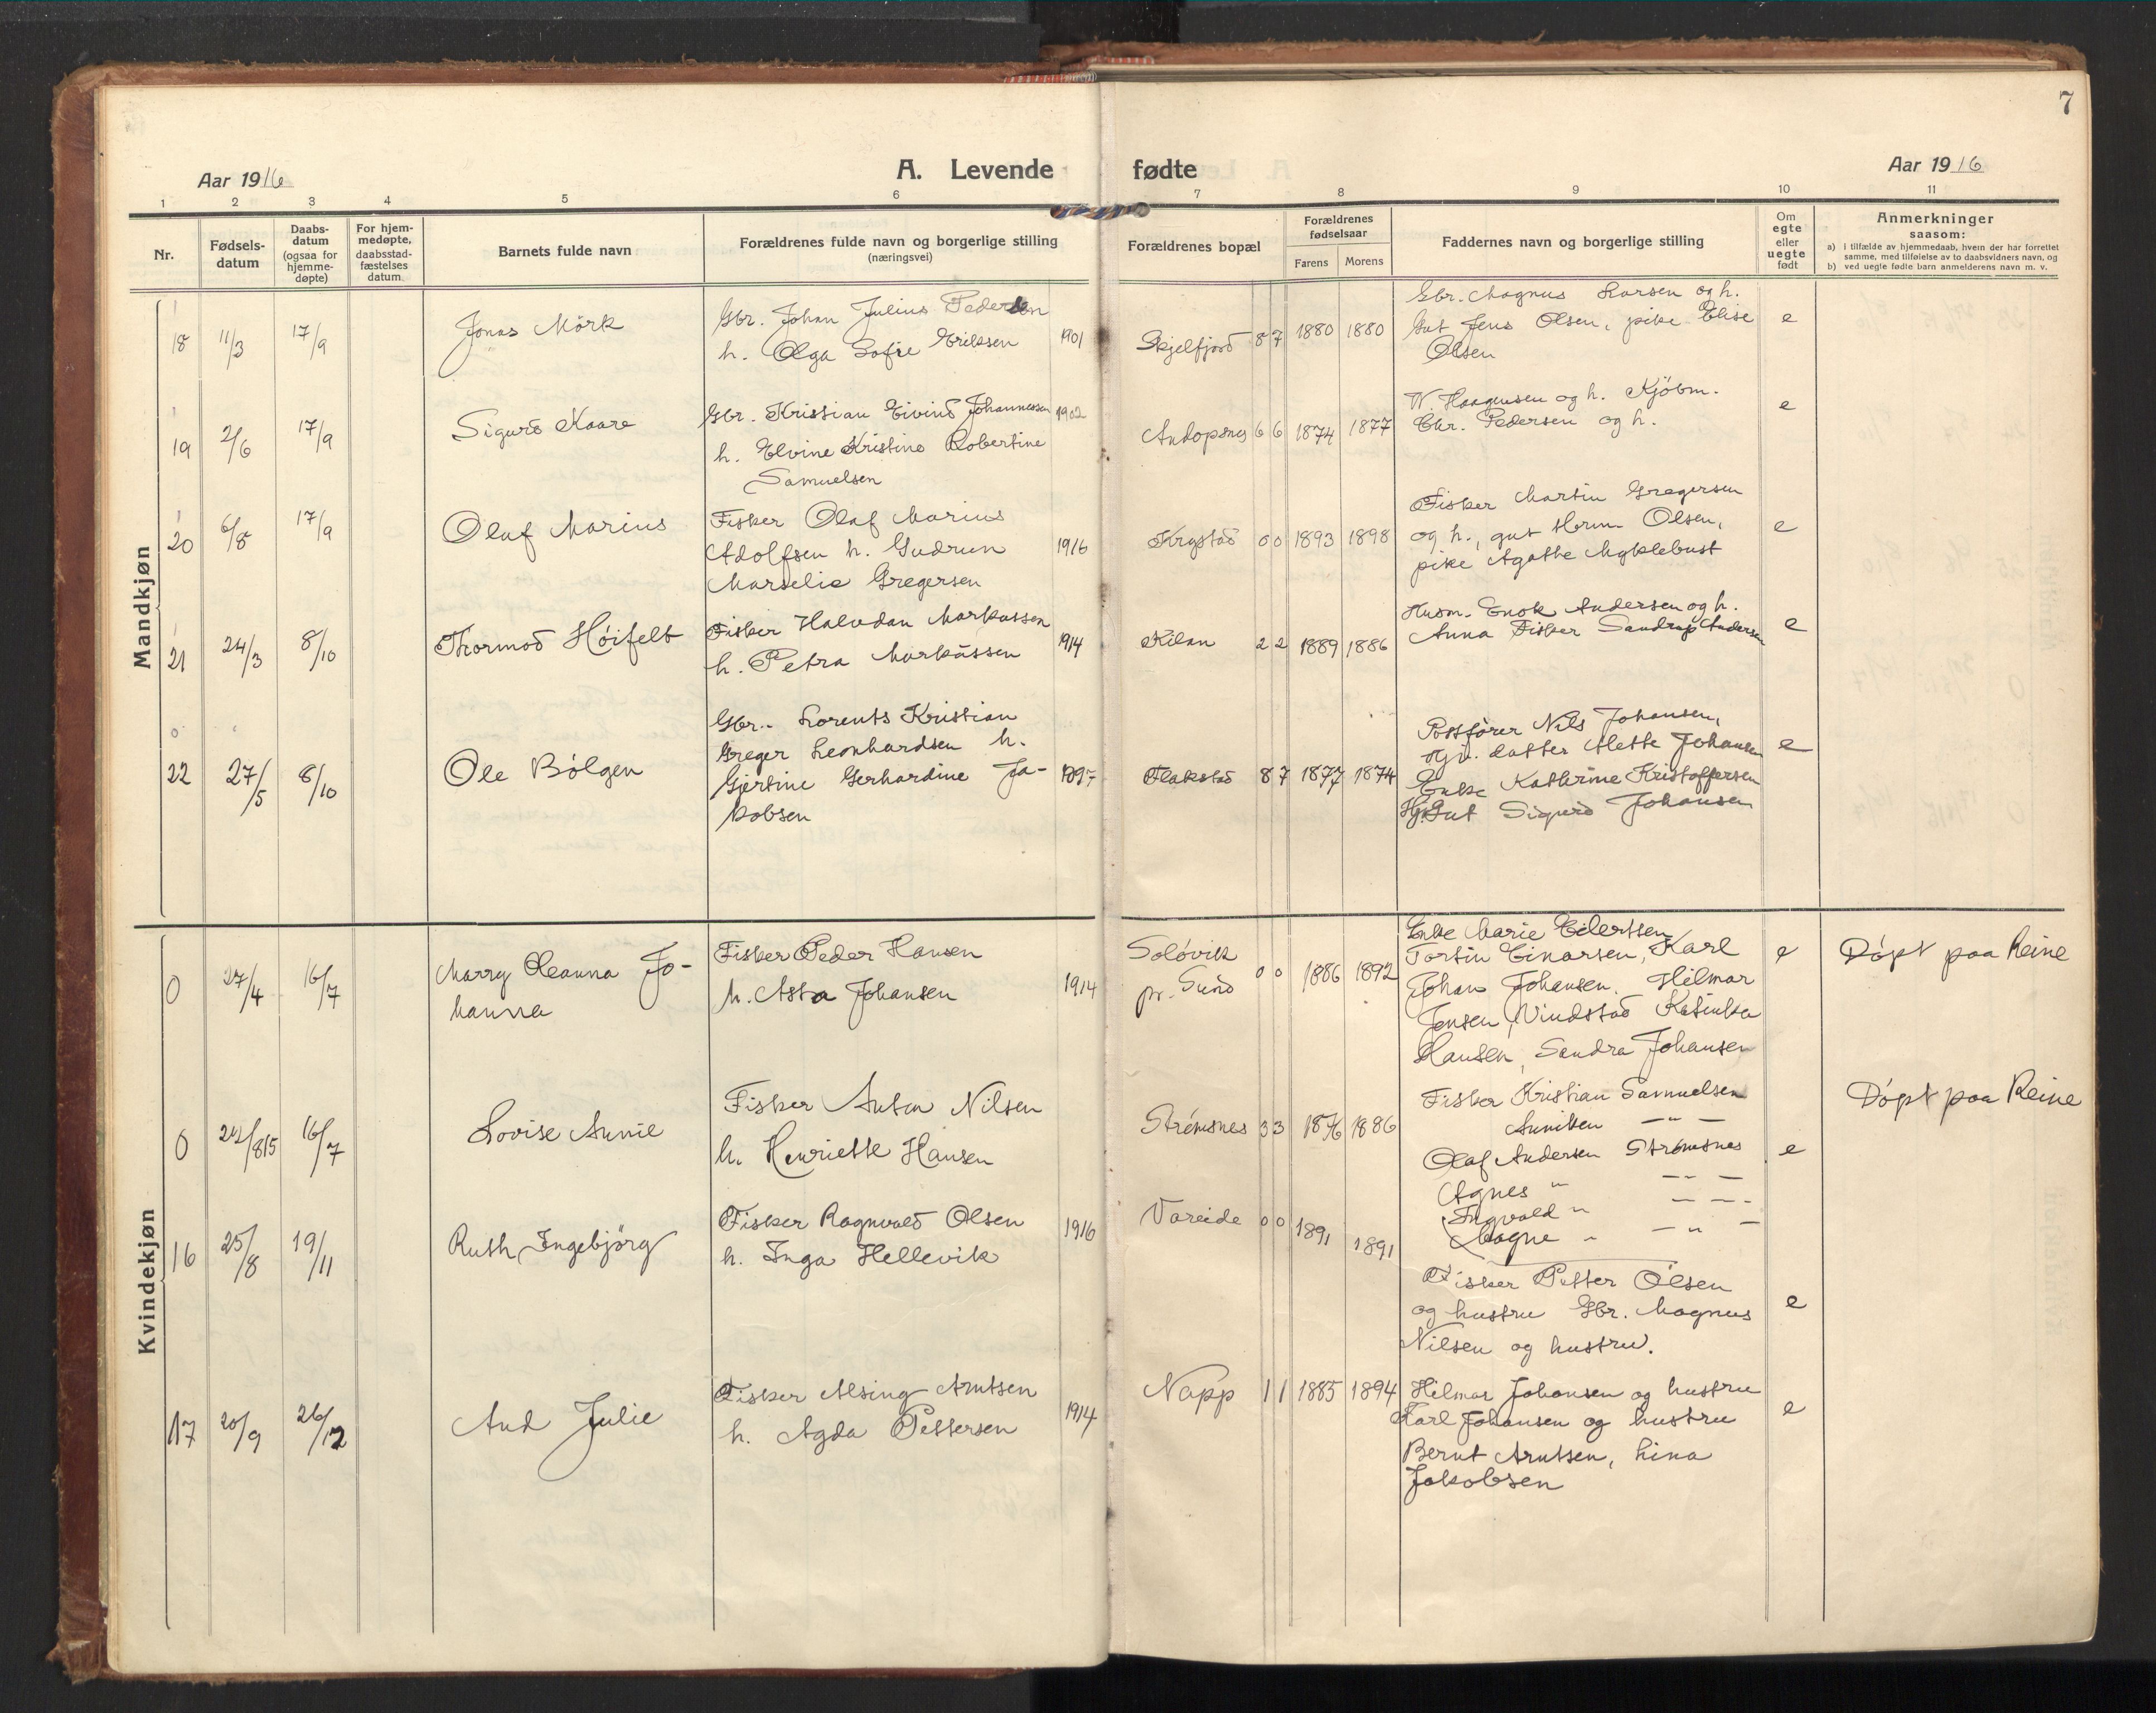 7
Aar 1916
A. Levende fødte
Aar 1916
1 2 3 4 5 6 7 8 9 10 11
Nr.
Fødsels-
datum
Daabs-
datum
(ogsaa for
hjemme-
døpte)
For hjem-
medøpte,
daabsstad-
fæstelses
datum
Barnets fulde navn
Forældrenes fulde navn og borgerlige stilling
(næringsvei)
Forældrenes bopæl
Forældrenes
fødselsaar
Farens Morens
Faddernes navn og borgerlige stilling
Om
egte
eller
uegte
født
Anmerkninger
saasom:
a) i tilfælde av hjemmedaab, hvem der har forrettet
samme, med tilføielse av to daabsvidners navn, og
b) ved uegte fødte barn anmelderens navn m. v.
Mandkjøn
18 11/3 17/9
Jonas Mörk
Gbr. Johan Julius Pedersen
h. Olga Sofie Eriksen 1901
Skjelfjord 8 7 1880 1880
Gbr. Magnus Larsen og h.
Gut Jens Olsen, pike Elise
Olsen
e
19 2/6 17/9
Sigurd Kaare
Gbr. Kristian Eivind Johannessen 1902
h. Elvine Kristine Robertine
Samuelsen
Andopsnes 6 6 1874 1877
W. Haagensen og h. Kjöbm.
Chr. Pedersen og h.
e
20 6/8 17/9
Olaf Marius
Fisker Olaf Marius
Adolfsen h. Gudrun 1916
Marselie Gregersen
Krystad 0 0 1893 1898
Fisker Martin Gregersen
og h., gut Herm. Olsen,
pike Agathe Myklebust
e
21 24/3 8/10
Thormod Höifelt
Fisker Halvdan Markussen
h. Petra Markussen 1914
Kilan 2 2 1889 1886
Husm. Enok Andersen og h.
Anna Fisker Sandrup Andersen
e
22 27/5 8/10
Ole Bölgen
Gbr. Lorents Kristian
Greger Leonhardsen h.
Gjertine Gerhardine Ja- 1897
kobsen
Flakstad 8 7 1877 1874
Postförer Nils Johansen,
Hj. datter Mette Johansen
Enke Kathrine Kristoffersen
Hj. Gut Sigurd Johansen
e
Kvindekjøn
0 27/4 16/7
Marry Oleanna Jo-
hanna
Fisker Peder Hansen
h. Asta Johansen 1914
Solövik
pr. Sund 0 0 1886 1892
Enke Marie Eilertsen
Tortin Einarsen, Karl
Johan Johansen, Hilmar
Jensen, Vindstad Katinka
Hansen, Sandra Johansen
e
Döpt paa Reine
0 24/815 16/7
Lovise Annie
Fisker Anton Nilsen
h. Henriette Hansen
Strömsnes 3 3 1876 1886
Fisker Kristian Samuelsen
Anniken — " —
Olaf Andersen Strömsnes
Agnes " — " —
Ingvald " — " —
Magne " — " —
e
Döpt paa Reine
16 25/8 19/11
Ruth Ingebjörg
Fisker Ragnvald Olsen 1916
h. Inga Hellevik
Vareide 0 0 1891 1891
Fisker Petter Olsen
og hustru Gbr. Magnus
Nilsen og hustru.
e
17 20/9 26/12
Aud Julie
Fisker Alsing Arntsen
h. Agda Pettersen 1914
Napp 1 1 1885 1894
Hilmar Johansen og hustru
Karl Johansen og hustru
Bernt Arntsen, Lina
Jakobsen
e